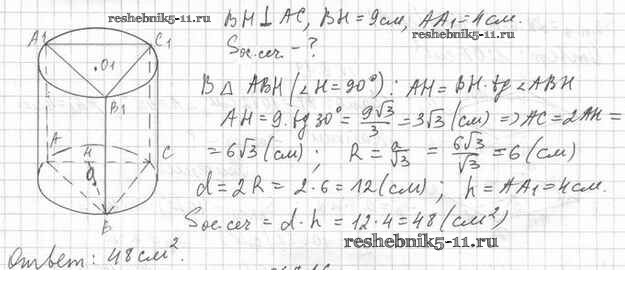 BH ⊥ AC, BH = 9см, AA₁ = 4см.
reshebnik5-11.ru
reshebnik5-11.ru
Sос.сеч - ?
A1
C1
O1
B1
A
H
C
B
В △ ABH (∠H = 90°): AH = BH · tg ∠ABH
AH = 9 · tg 30° = 9√3/3 = 3√3 (см) ⇒ AC = 2AH =
= 6√3 (см); R = a/√3 = 6√3/√3 = 6 (см)
d = 2R = 2 · 6 = 12 (см); h = AA₁ = 4см.
Sос.сеч = d · h = 12 · 4 = 48 (см²)
reshebnik5-11.ru
Ответ: 48 см².